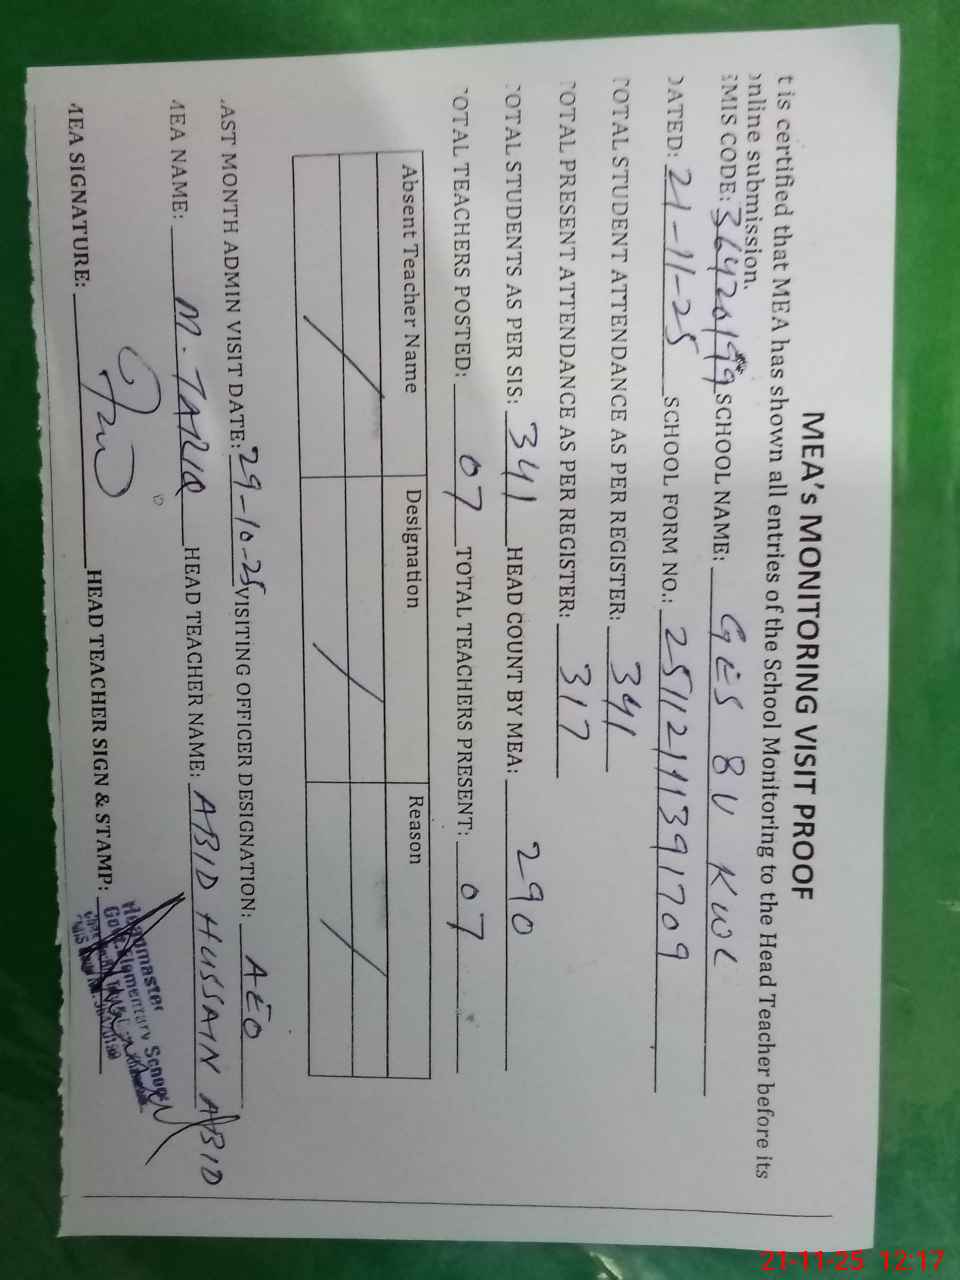 MEA's MONITORING VISIT PROOF
t is certified that MEA has shown all entries of the School Monitoring to the Head Teacher before its
nline submission.
EMIS CODE: 36420199 SCHOOL NAME: GES 8V KWL
DATED: 21-11-25 SCHOOL FORM NO.: 25112111391709
TOTAL STUDENT ATTENDANCE AS PER REGISTER: 341
TOTAL PRESENT ATTENDANCE AS PER REGISTER: 317
TOTAL STUDENTS AS PER SIS: 341 HEAD COUNT BY MEA: 290
TOTAL TEACHERS POSTED: 07 TOTAL TEACHERS PRESENT: 07
Absent Teacher Name Designation Reason
/ / /
LAST MONTH ADMIN VISIT DATE: 29-10-25 VISITING OFFICER DESIGNATION: AEO
MEA NAME: M. TARIQ HEAD TEACHER NAME: ABID HUSSAIN ABID
MEA SIGNATURE: HEAD TEACHER SIGN & STAMP:
Headmaster
Govt. Elementary School
21-11-25 12:17